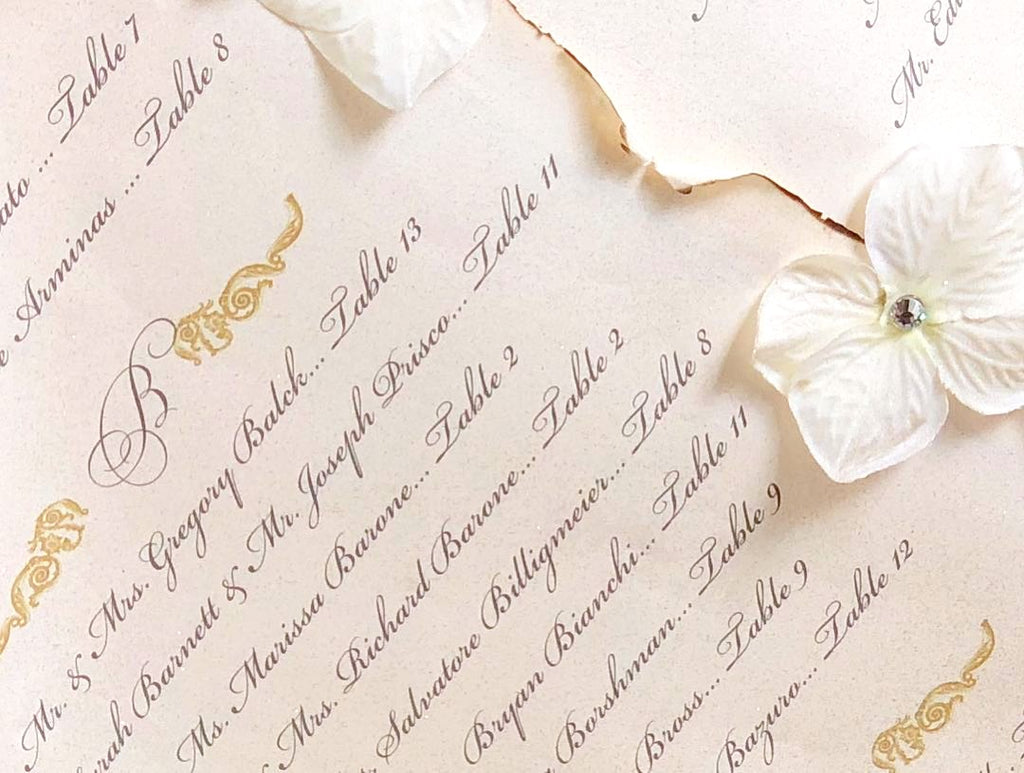 ato ... Table 7
Arminas .... Table 8
B
Mr. & Mrs. Gregory Balck... Table 13
rah Barnett & Mr. Joseph Prisco... Table 11
Ms. Marissa Barone... Table 2
Mrs. Richard Barone... Table 2
Salvatore Billigmeier... Table 8
Bryan Bianchi... Table 11
Borshman... Table 9
Bross... Table 9
Bazuro... Table 12
Mr. Ed